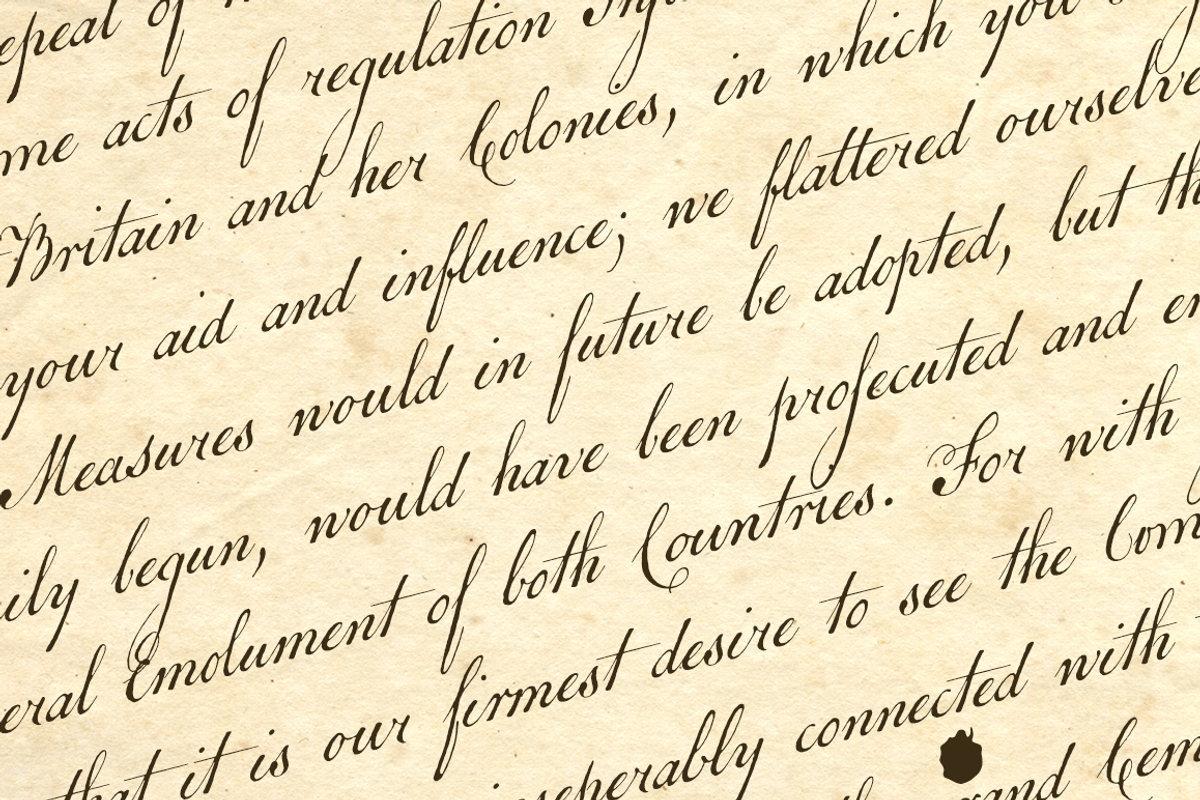 epeal of
me acts of regulation
Britain and her Colonies, in which you
your aid and influence; we flattered ourselve
Measures would in future be adopted, but th
ily begun, would have been proſecuted and en
eral Emolument of both Countries. For with
that it is our firmest desire to see the Com
seperably connected with
and Cem